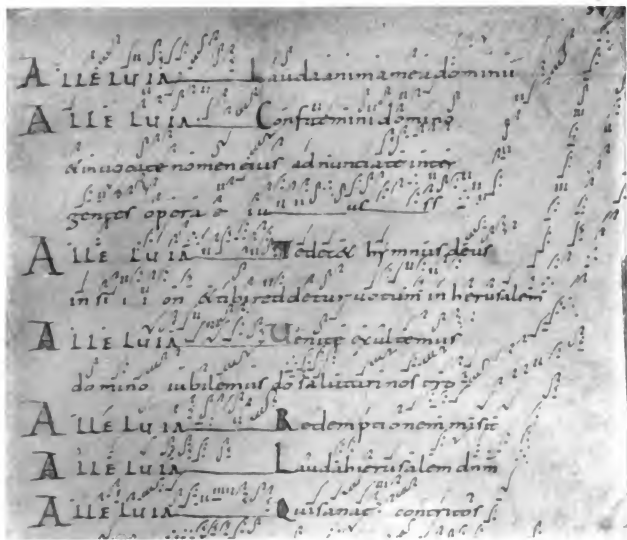 ALLELUIA Lauda anima mea dominū
ALLELUIA Confitemini domino
& inuocate nomen eius adnunciate inter
gentes opera e iu us
ALLELUIA Te dec& hymnus deus
in si i i on & tibi reddetur uotum in hierusalem
ALLELUIA Uenite exultemus
domino iubilemus dō salutari nostro
ALLELUIA Redemptionem misit
ALLELUIA Lauda hierusalem dnm
ALLELUIA Qui sanat contritos